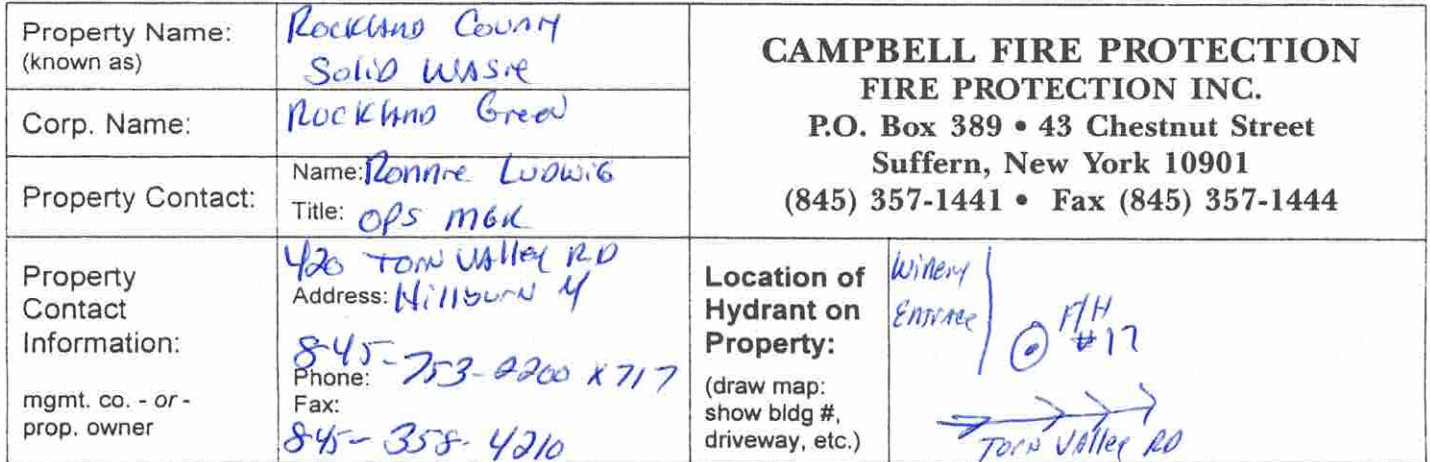 Property Name:
(known as)
Rockland County
Solid Waste
Corp. Name:
Rockland Green
Property Contact:
Name: Ronnie Ludwig
Title: OPS MGR
Property
Contact
Information:
mgmt. co. - or -
prop. owner
420 Torn Valley RD
Address: Hillburn NY
845-753-2200 x717
Phone:
Fax:
845-358-4210
CAMPBELL FIRE PROTECTION
FIRE PROTECTION INC.
P.O. Box 389 • 43 Chestnut Street
Suffern, New York 10901
(845) 357-1441 • Fax (845) 357-1444
Location of
Hydrant on
Property:
(draw map:
show bldg #,
driveway, etc.)
Winery
Entrance
F/H
#17
Torn Valley RD